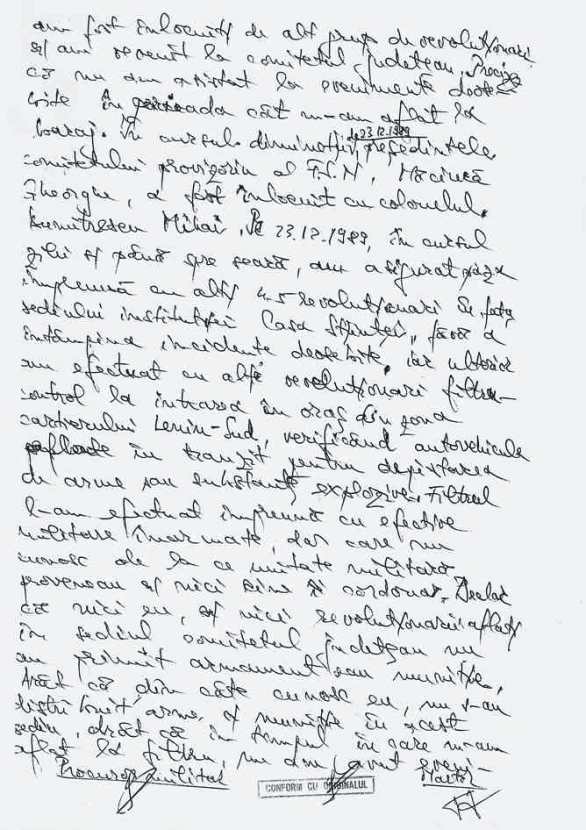 am fost înlocuiți de alt grup de revoluționari
și am revenit la comitetul județean. Precizez
că nu am asistat la evenimente deose-
bite în perioada cât m-am aflat la
baraj. În cursul dimineții de 23.12.1989, președintele
comitetului provizoriu al F.S.N,
Gheorghe, a fost înlocuit cu colonelul
Dumitrescu Mihai. Pe 23.12.1989, în cursul
zilei și până spre seară, am asigurat paza
împreună cu alți 4-5 revoluționari în fața
sediului instituției Casa Științei, fără a
întâmpina incidente deosebite, iar ulterior
am efectuat cu alți revoluționari filtru-
control la intrarea în oraș din zona
cartierului Lenin-Sud, verificând autovehicule
aflate în tranzit pentru depistarea
de arme sau substanțe explozive. Filtrul
l-am efectuat împreună cu efective
militare înarmate, dar care nu
cunosc de la ce unitate militară
proveneau și nici cine îi coordona. Declar
că nici eu, și nici revoluționarii aflați
în sediul comitetul județean nu
am primit armament sau muniție.
Arăt că din câte cunosc eu, nu s-au
distribuit arme și muniție în acest
sediu, arăt că în timpul în care m-am
aflat la filtru, nu am avut eveni-
Procuror militar
Martor
CONFORM CU ORIGINALUL